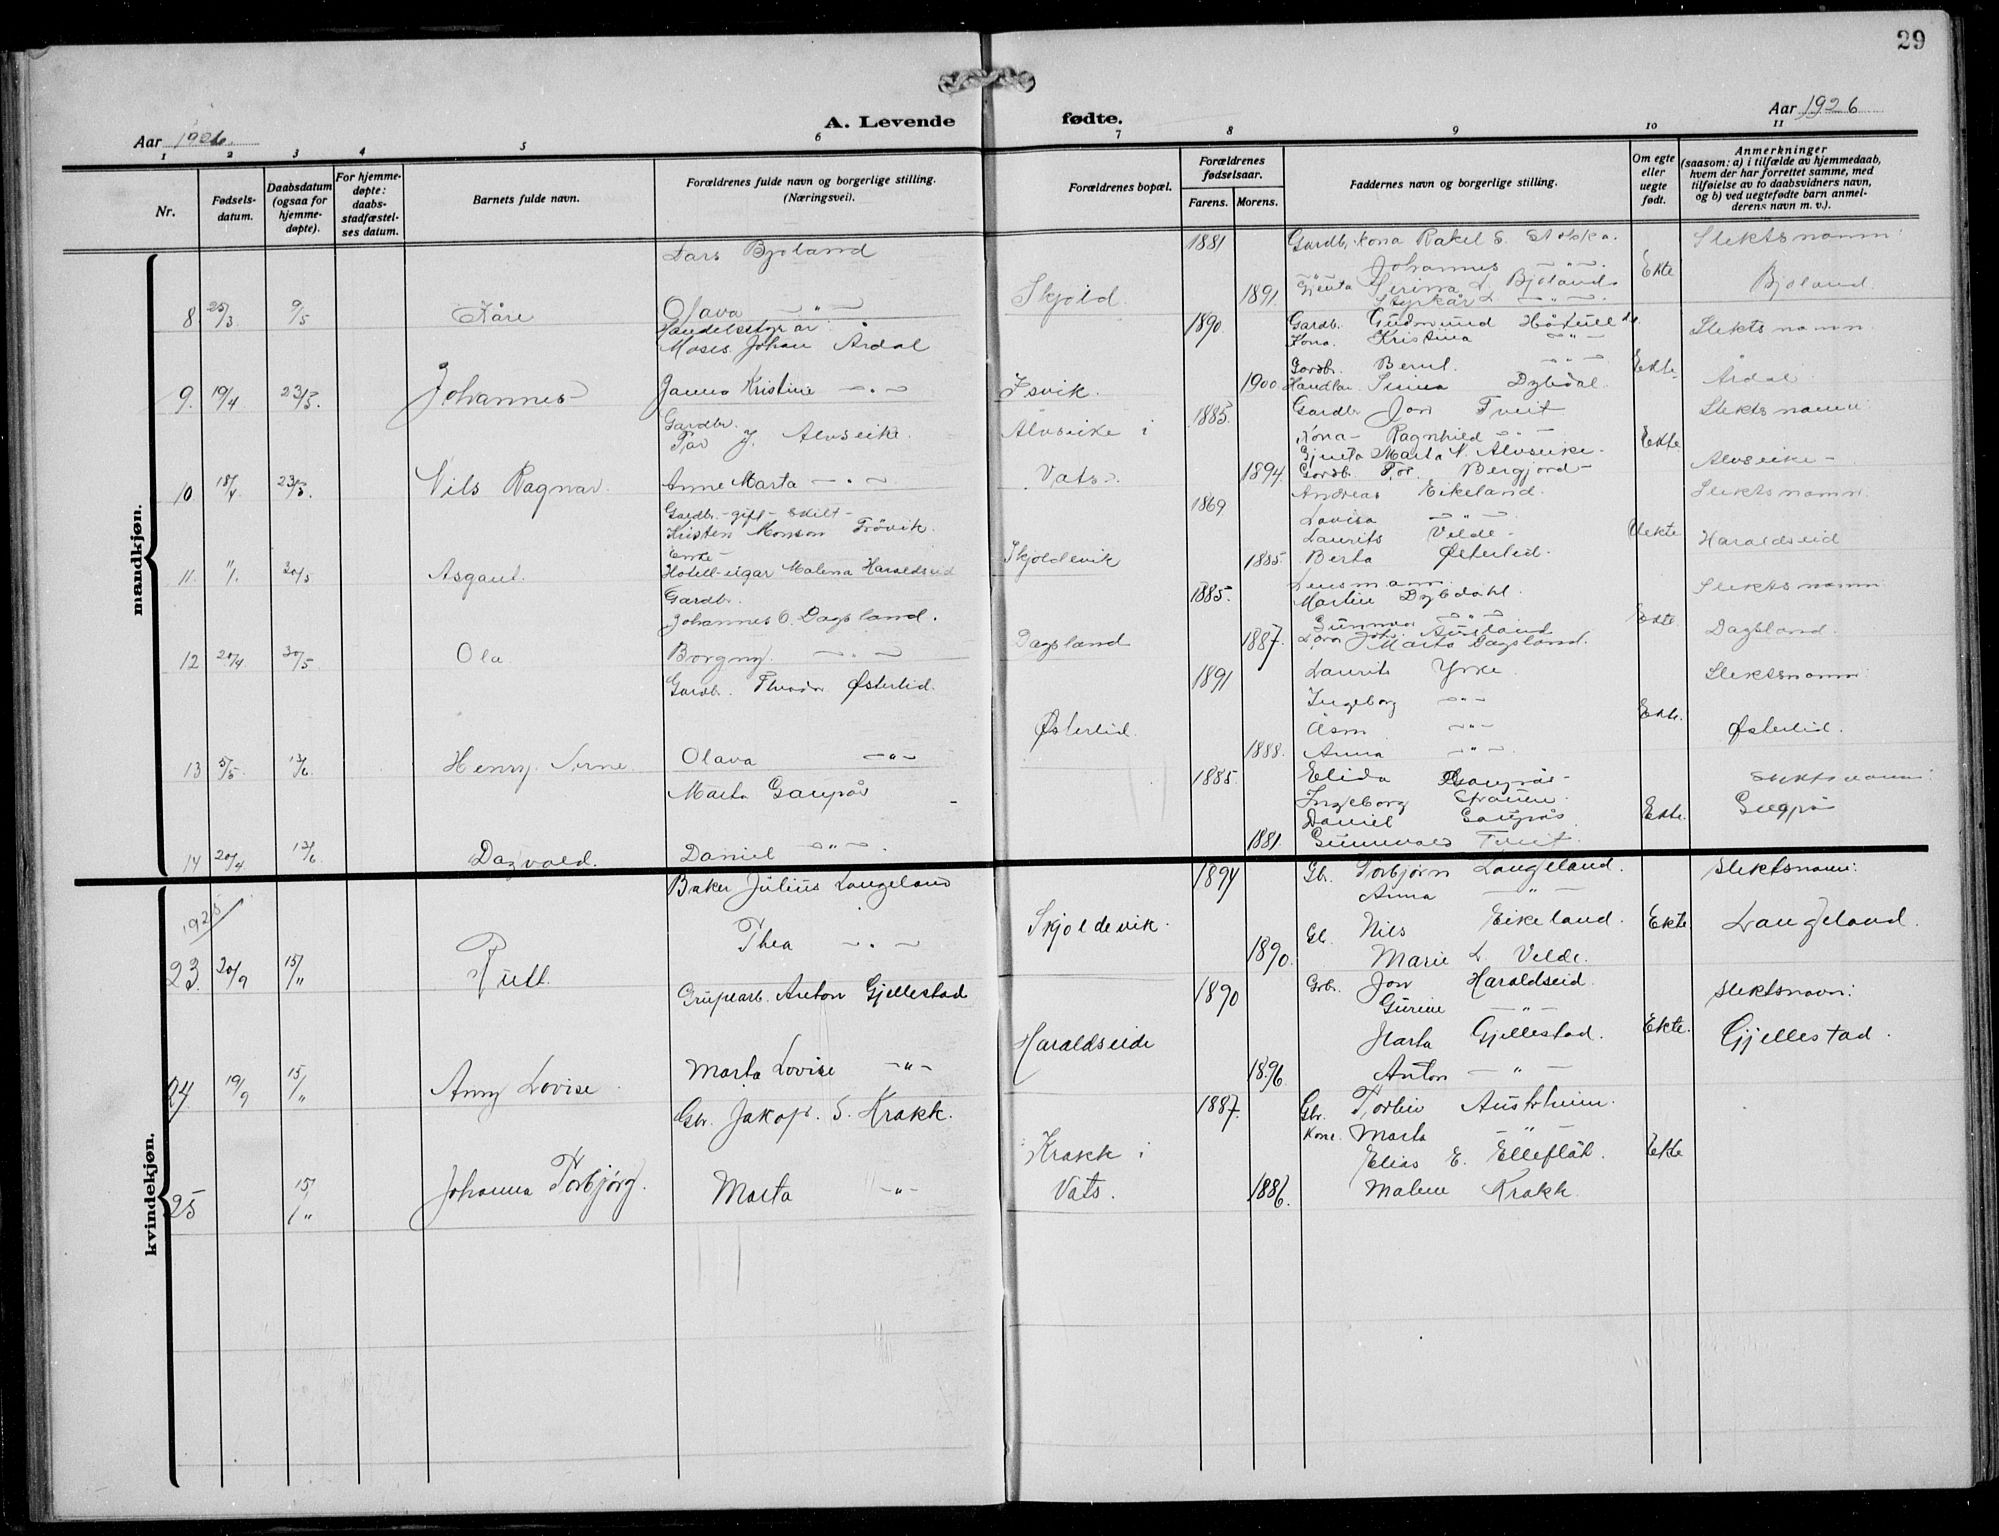 29
Aar 1926.
A. Levende fødte.
Aar 1926
1 2 3 4 5 6 7 8 9 10 11
Nr.
Fødsels-
datum.
Daabsdatum
(ogsaa for
hjemme-
døpte).
For hjemme-
døpte:
daabs-
stadfæstel-
ses datum.
Barnets fulde navn.
Forældrenes fulde navn og borgerlige stilling.
(Næringsvei).
Forældrenes bopæl.
Forældrenes
fødselsaar.
Farens. Morens.
Faddernes navn og borgerlige stilling.
Om egte
eller
uegte
født.
Anmerkninger
(saasom: a) i tilfælde av hjemmedaab,
hvem der har forrettet samme, med
tilføielse av to daabsvidners navn,
og b) ved uegtefødte barn anmel-
derens navn m. v.).
mandkjøn.
8 25/3 9/5 Kåre
Lars Bjoland
Olava —"—
Skjold.
1881
1891
Gardbr. kona Rakel S. Stokka.
Johannes —"—
Gjenta Serina L. Bjoland
Styrkår L —"—
Ekte
Slektsnamn:
Bjoland.
9. 19/4 23/5. Johannes
Handelsstyrar
Moses Johan Årdal
Janna Kristine —"—
Isvik.
1890
1900
Gardb. Gudmund
Kona. Kristina —"—
Gardbr. Bernt —"—
Dybdal.
Ekte.
Slektsnamn
Årdal
10 18/4 23/5. Nils Ragnar
Gardbr.
Tor J. Alvseike.
Anne Marta —"—
Alvseike i
Vats.
1885
1894
Gardbr Jon Tveit
Kona Ragnhild —"—
Gjenta Marta N. Alvseike
Gardb. Tor Bergjord
Ekte
Slektsnamn
Alvseike
11. 11/1. 30/5 Asgaut.
Gardbr. gift skilt
Kristen Monson Trövik.
Enke
Hotell-eigar Malena Haraldseid
Skjoldevik
1869
1885
Andreas Eikeland.
Lovisa —"—
Laurits Velde
Berta Østerlid.
Uekte
Slektsnamn:
Haraldseid
12 20/4 30/5 Ola
Gardbr.
Johannes O. Dagsland.
Borgny. —"—
Dagsland
1885.
1887.
Lensmann
Martin Dybdahl.
Gunnar —"—
Marta Dagsland.
Ekte
Slektsnamn:
Dagsland.
13 5/5. 13/6 Henry
Gardb. Østerlid.
Olava —"—
Østerlid.
1891
1888.
Laurits Yrke
Ingeborg —"—
Åsm —"—
Anna —"—
Ekte.
Slektsnamn:
Østerlid.
14 20/4 13/6 Dagvald.
Marta Gaupås
Daniel —"—
1885
1881
Elida
Ingeborg
Daniel Gaupås
Gunnvald Tveit
Ekte.
Slektsnamn:
kvindekjøn.
1925
23. 20/9 15/11 Rutt.
Baker Julius Langeland
Thea —"—
Skjoldevik.
1894
1890.
Gb. Torbjørn Langeland.
Anna —"—
Gb. Nils Eikeland.
Marie L. Velde.
Ekte
Slektsnamn:
Langeland.
24. 19/9 15/11 Anny Lovise
Anton Gjellestad
Marta Lovise —"—
Haraldseide
1890
1896.
Gbr. Jon Haraldseid
Gurine —"—
Marta Gjellestad.
Anton —"—
Ekte.
Slektsnavn:
Gjellestad.
25 15/11 Johanna Torbjørg.
Gbr. Jakop. S. Krakk.
Marta —"—
Krakk i
Vats.
1887.
1886.
Gbr. Torleiv Austrheim.
Kone. Marta —"—
Elias E. Elleflåt.
Malene Krakk.
Ekte